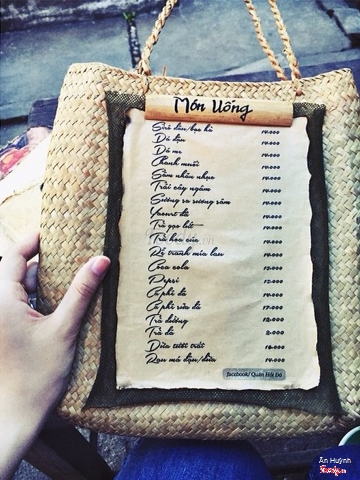 Món Uống
Sirô dâu/bạc hà 14.000
Đá đậu 14.000
Đá me 14.000
Chanh muối 14.000
Sâm nhãn nhục 14.000
Trái cây ngâm 14.000
Sương sa sương sâm 14.000
Yaourt đá 14.000
Trà gạo lứt 14.000
Trà hoa cúc 14.000
Rễ tranh mía lau 14.000
Coca cola 15.000
Pepsi 15.000
Cà phê đá 14.000
Cà phê sữa đá 17.000
Trà đường 12.000
Trà đá 2.000
Dừa tươi trái 16.000
Rau má đậu/dừa 14.000
facebook/ Quán Hội Đó
An Huỳnh
Foody.vn